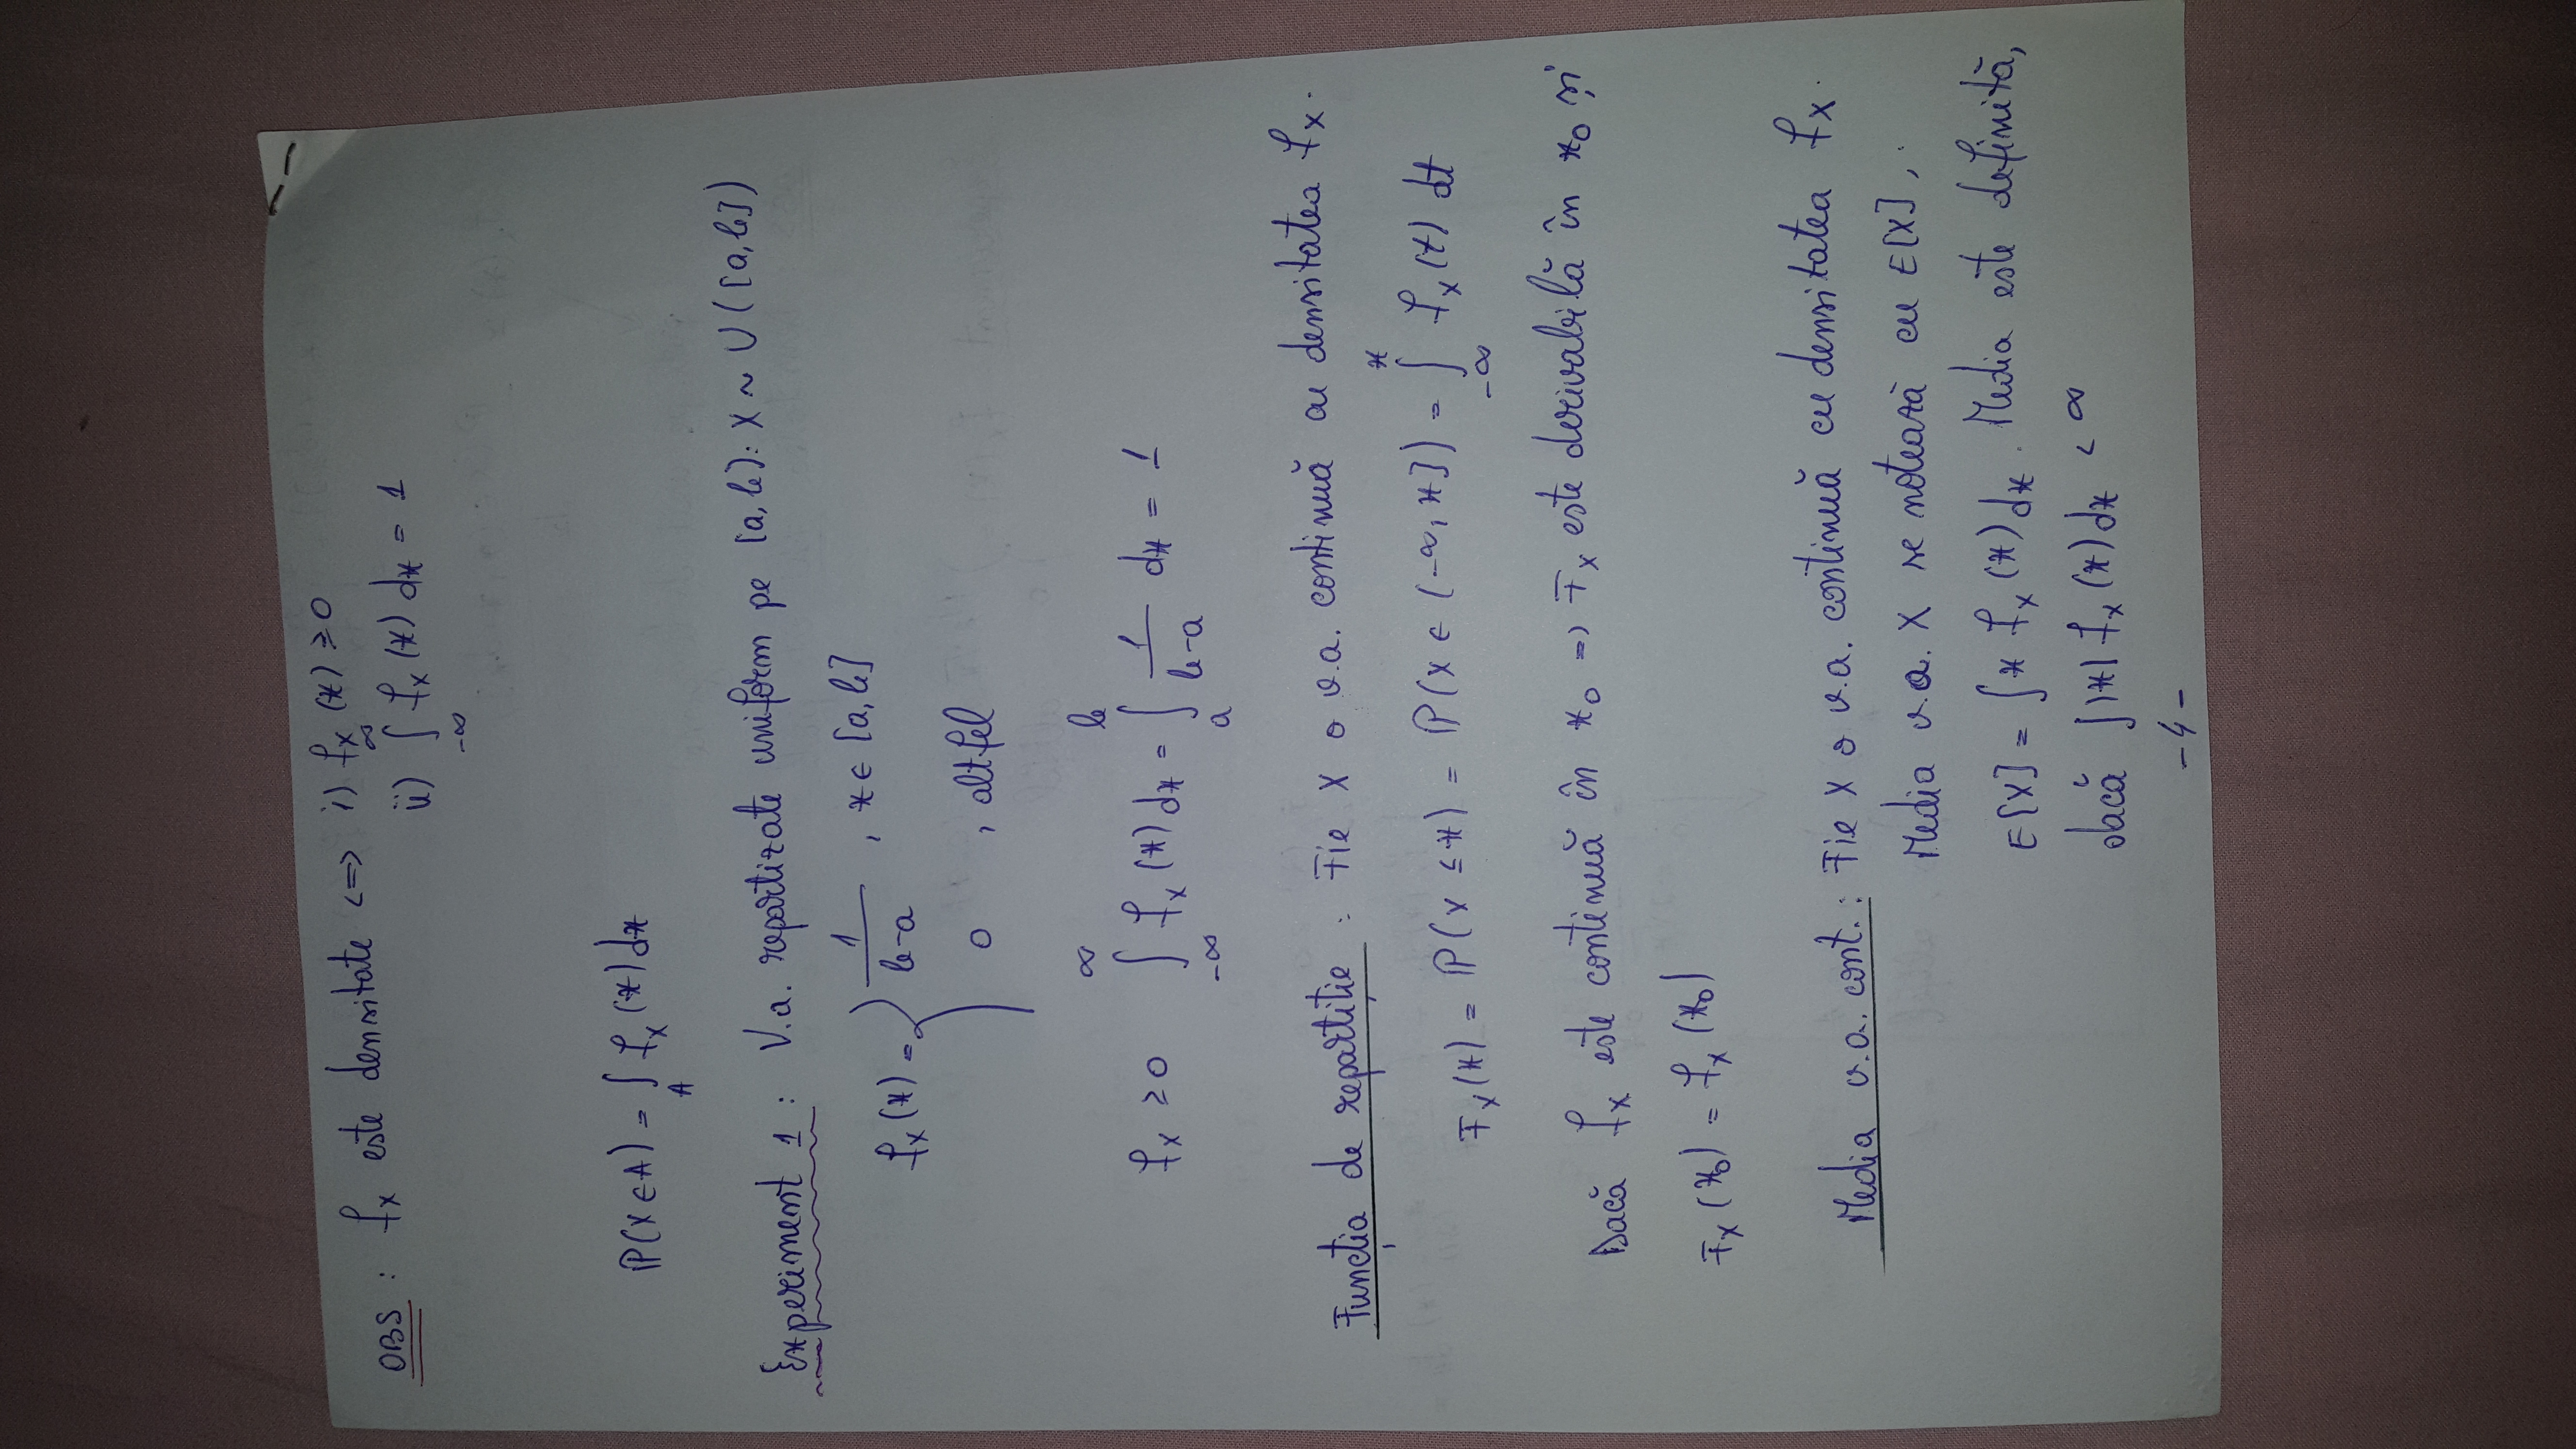 OBS : fx este densitate <=> i) fx (x) ≥ 0
ii) ∫_{-∞}^{∞} fx (x) dx = 1
P(X ∈ A) = ∫_A fx (x) dx
Experiment 1 : V.a. repartizate uniform pe [a, b]: X ~ U ([a, b])
fx (x) = { 1/(b-a) , x ∈ [a, b]
0 , altfel
fx ≥ 0 ∫_{-∞}^{∞} fx (x) dx = ∫_a^b 1/(b-a) dx = 1
Funcția de repartiție : Fie X o v.a. continuă cu densitatea fx.
Fx (x) = P(X ≤ x) = P(X ∈ (-∞, x]) = ∫_{-∞}^{x} fx (t) dt
Dacă fx este continuă în x0 => Fx este derivabilă în x0 și
Fx (x0) = fx (x0)
Media v.a. cont. : Fie X o v.a. continuă cu densitatea fx.
Media v.a. X se notează cu E[X],
E[X] = ∫ x fx (x) dx. Media este definită,
dacă ∫ |x| fx (x) dx < ∞
- 4 -